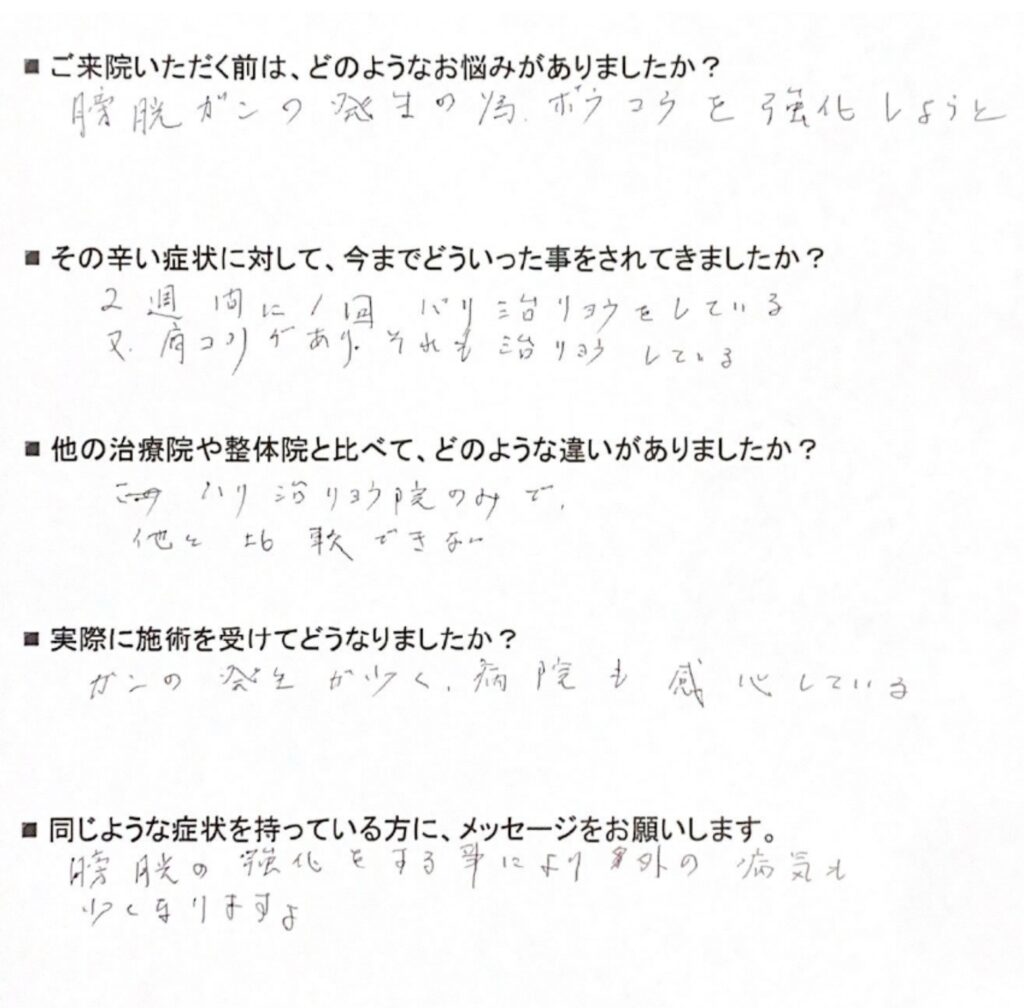 ■ご来院いただく前は、どのようなお悩みがありましたか？
膀胱ガンの発生の為、ボウコウを強化しようと
■その辛い症状に対して、今までどういった事をされてきましたか？
2週間に1回 ハリ治リョウをしている
又、肩コリがあり、それも治リョウしている
■他の治療院や整体院と比べて、どのような違いがありましたか？
ハリ治リョウ院のみで、
他と比較できない
■実際に施術を受けてどうなりましたか？
ガンの発生が少く、病院も感心している
■同じような症状を持っている方に、メッセージをお願いします。
膀胱の強化をする事により 外の病気も
少くなりますよ